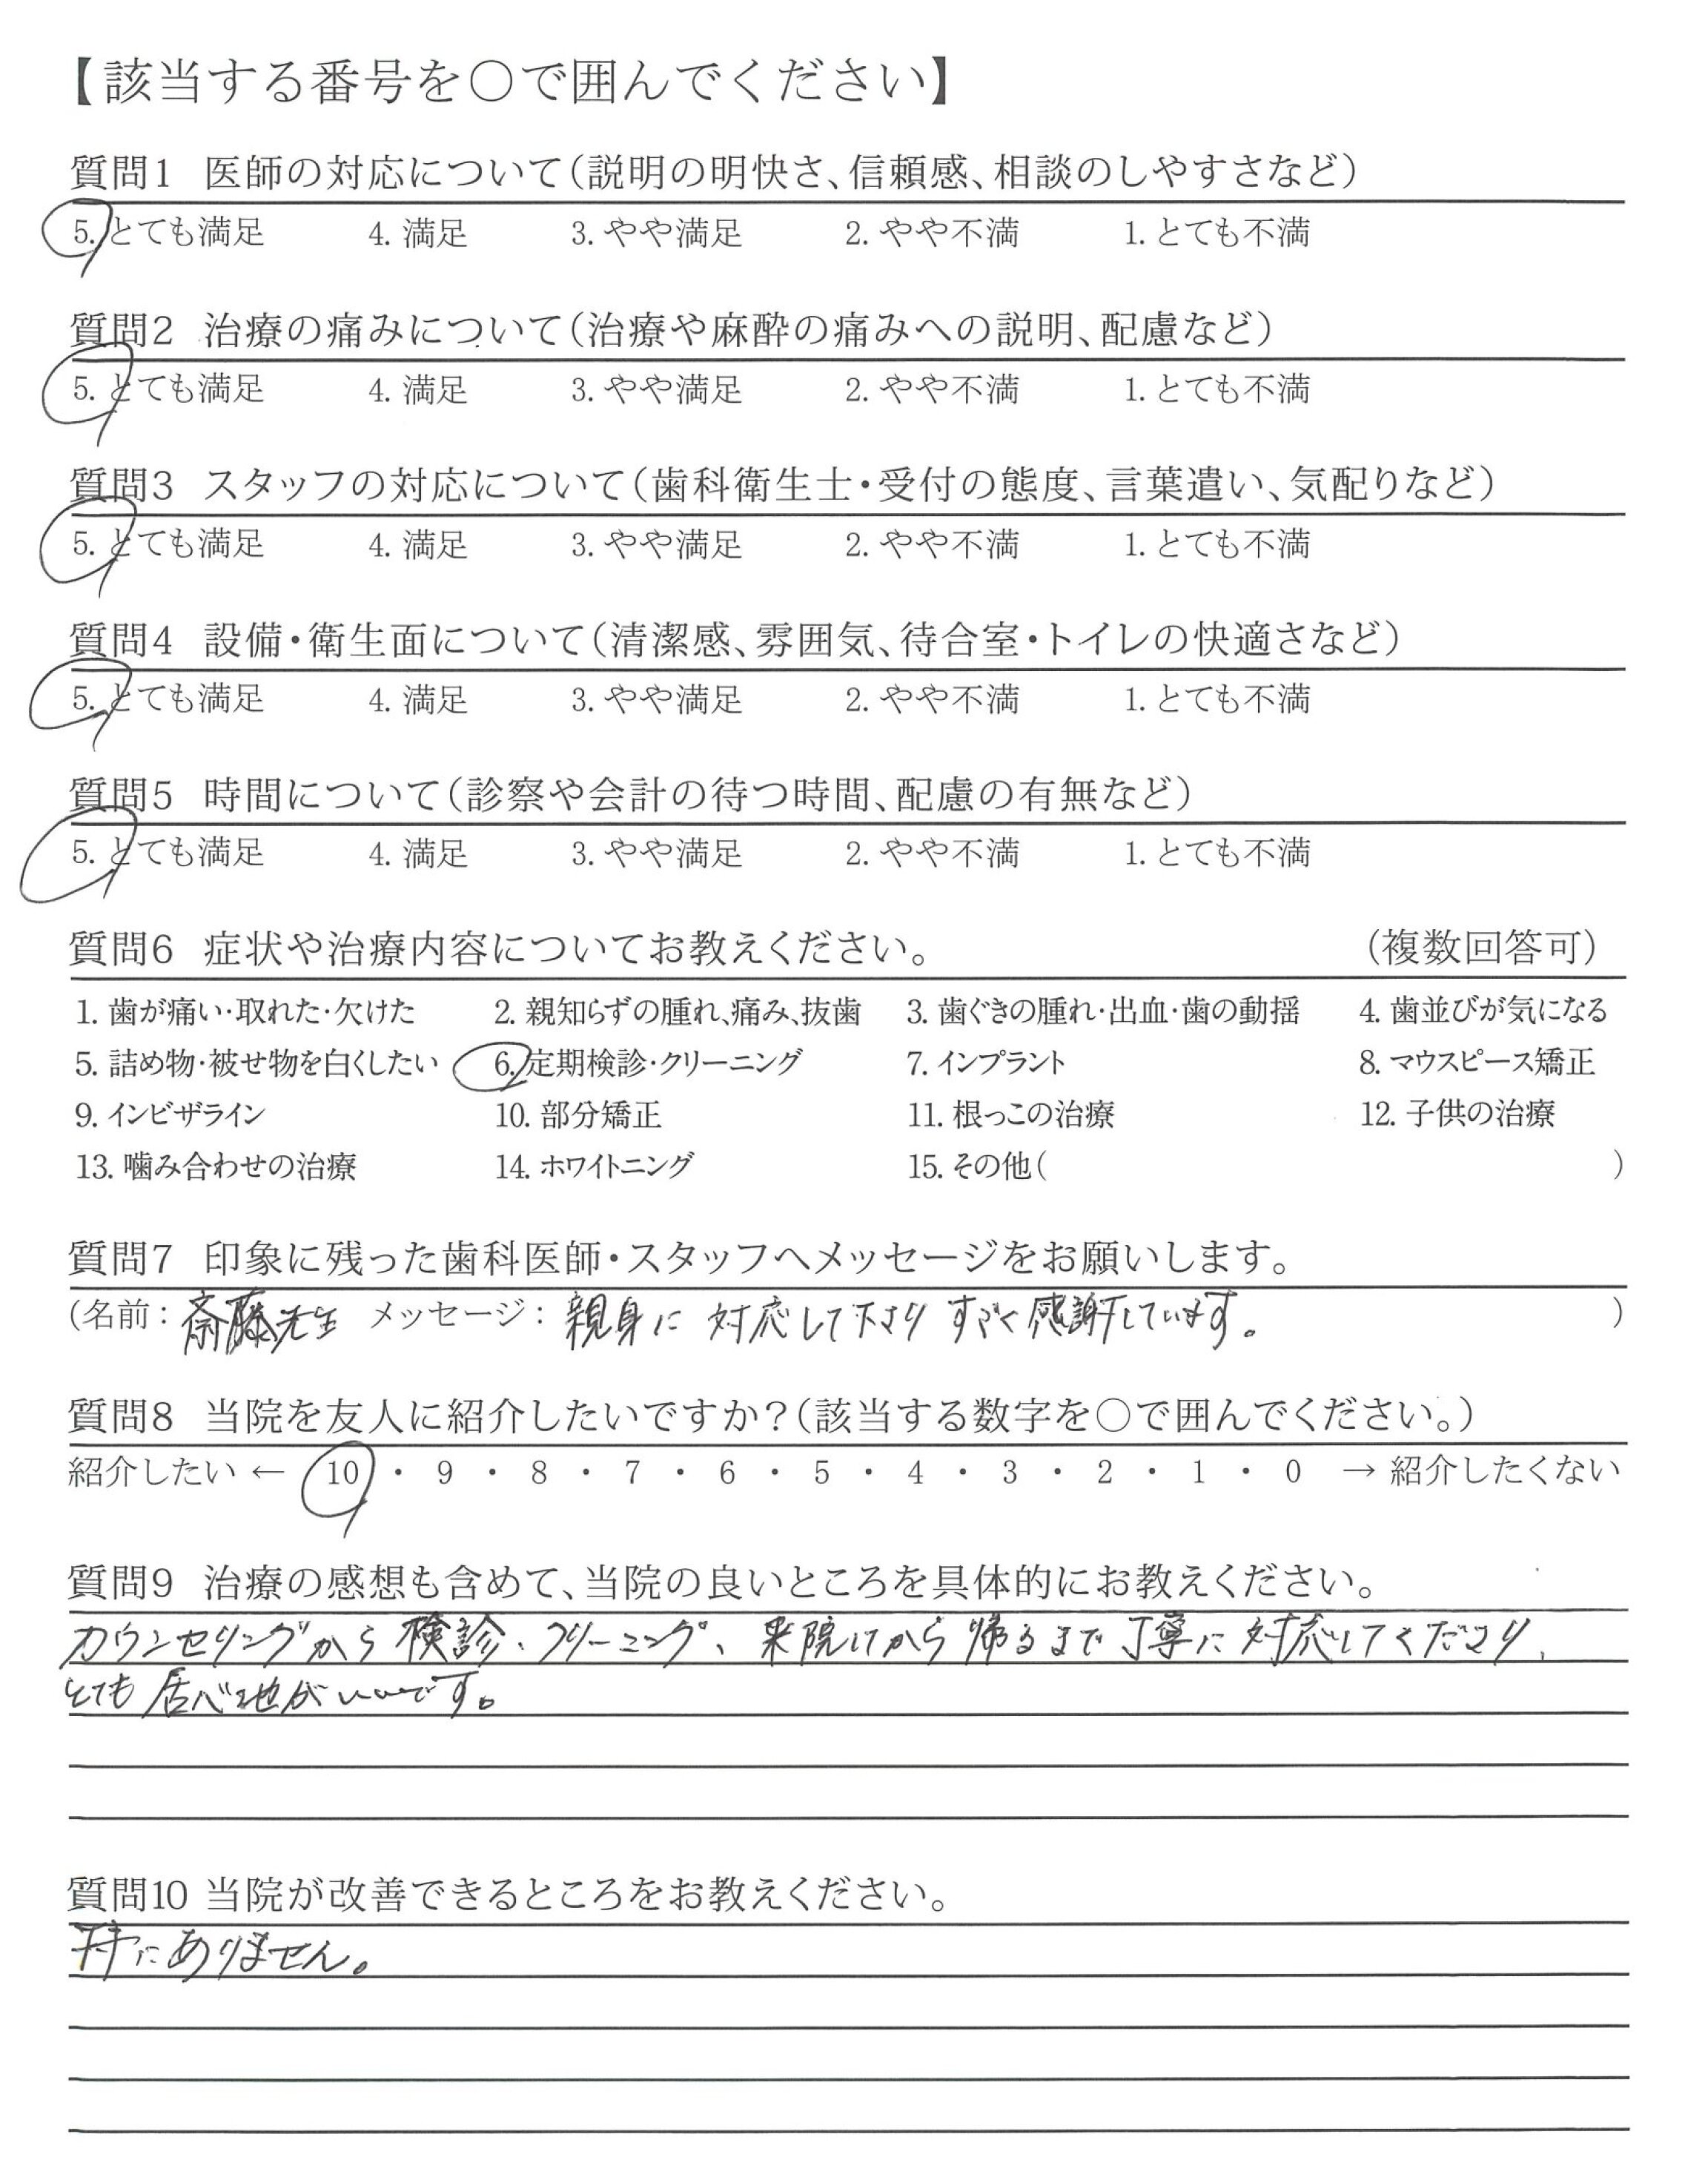 【該当する番号を○で囲んでください】
質問1 医師の対応について（説明の明快さ、信頼感、相談のしやすさなど）
5. とても満足 4. 満足 3. やや満足 2. やや不満 1. とても不満
質問2 治療の痛みについて（治療や麻酔の痛みへの説明、配慮など）
5. とても満足 4. 満足 3. やや満足 2. やや不満 1. とても不満
質問3 スタッフの対応について（歯科衛生士・受付の態度、言葉遣い、気配りなど）
5. とても満足 4. 満足 3. やや満足 2. やや不満 1. とても不満
質問4 設備・衛生面について（清潔感、雰囲気、待合室・トイレの快適さなど）
5. とても満足 4. 満足 3. やや満足 2. やや不満 1. とても不満
質問5 時間について（診察や会計の待つ時間、配慮の有無など）
5. とても満足 4. 満足 3. やや満足 2. やや不満 1. とても不満
質問6 症状や治療内容についてお教えください。 （複数回答可）
1. 歯が痛い・取れた・欠けた 2. 親知らずの腫れ、痛み、抜歯 3. 歯ぐきの腫れ・出血・歯の動揺 4. 歯並びが気になる
5. 詰め物・被せ物を白くしたい 6. 定期検診・クリーニング 7. インプラント 8. マウスピース矯正
9. インビザライン 10. 部分矯正 11. 根っこの治療 12. 子供の治療
13. 噛み合わせの治療 14. ホワイトニング 15. その他（ ）
質問7 印象に残った歯科医師・スタッフへメッセージをお願いします。
（名前：斎藤先生 メッセージ：親身に対応して下さりすごく感謝しています。 ）
質問8 当院を友人に紹介したいですか？（該当する数字を○で囲んでください。）
紹介したい ← 10 ・ 9 ・ 8 ・ 7 ・ 6 ・ 5 ・ 4 ・ 3 ・ 2 ・ 1 ・ 0 → 紹介したくない
質問9 治療の感想も含めて、当院の良いところを具体的にお教えください。
カウンセリングから検診、クリーニング、来院時から帰るまで丁寧に対応してくださり、
とても居心地がいいです。
質問10 当院が改善できるところをお教えください。
特にありません。